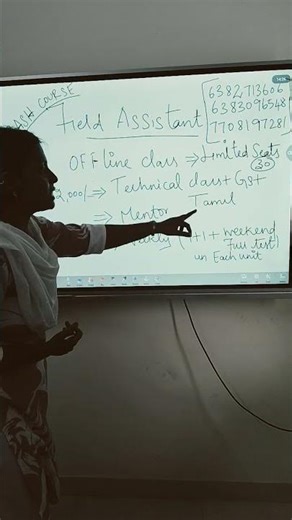 ASH COURSE
6382713606
6383096548
7708197281
Field Assistant
OFFline class ⇒ Limited Seats
(30)
2,000/- ⇒ Technical class + GST
Tamil
⇒ Mentor
(1+1+ weekend
Full test)
in Each unit